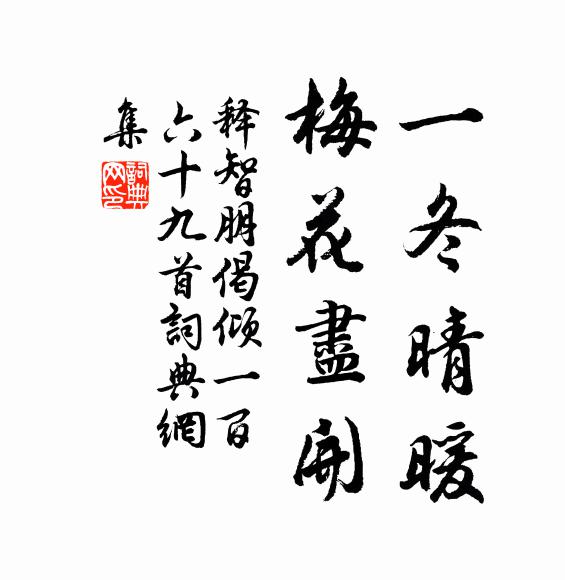 一冬晴暖
梅花盡開
释智朋偈倾一百
六十九首詞典網
集
詞典
网印